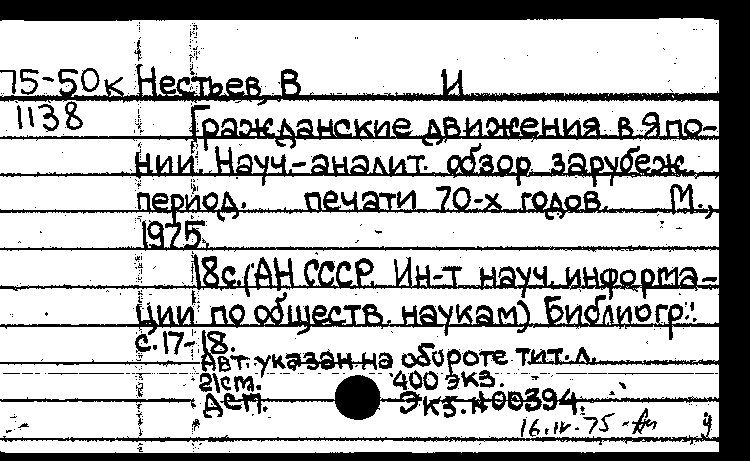 75-50к Нестьев, В И
1138 Гражданские движения в Япо-
нии. Науч.-аналит. обзор зарубеж.
период. печати 70-х годов. М.,
1975.
18с.(АН СССР. Ин-т науч. информа-
ции по обществ. наукам) Библиогр.:
с. 17-18.
Авт. указан на обороте тит. л.
21см. 400 экз.
Экз. №00394.
16.IV-75